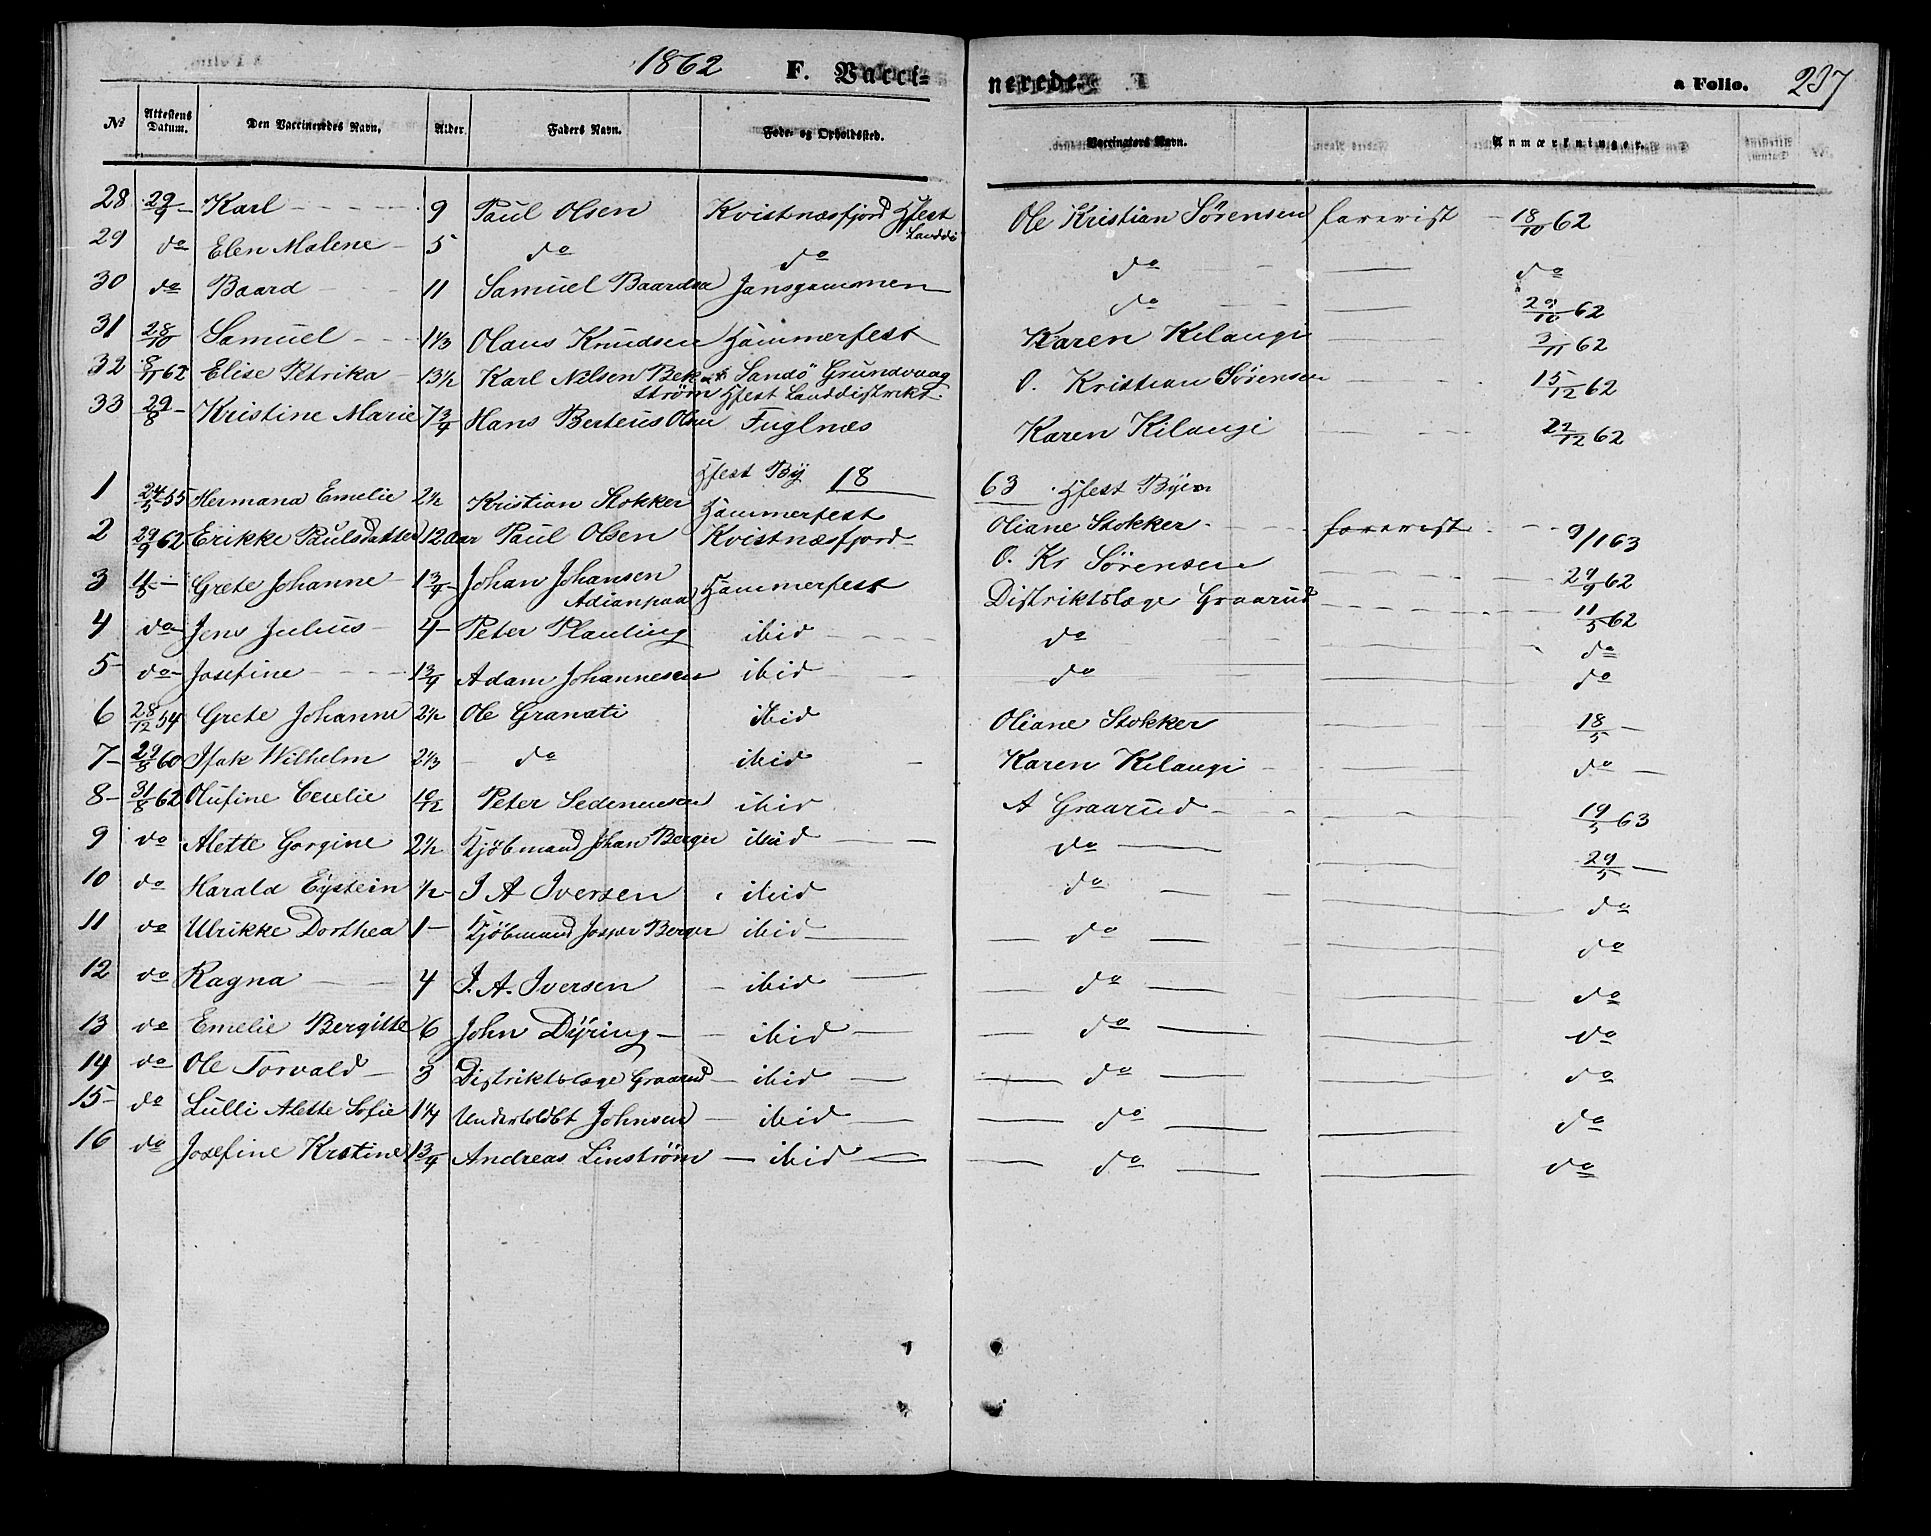 1862 F. Vacci- nerede. a Folio. 237
No Attestens Datum. Den Vaccineredes Navn. Alder. Faders Navn. Føde- og Opholdssted. Vaccinators Navn. Anmærkninger.
28 29/9 - Karl - 9 Paul Olsen Kvistnæsfjord Hfest Landd: Ole Kristian Sörensen forevist - 18/10 62
29 do Elen Malene - 5 do do do - do
30 do Baard 11 Samuel Baardsen Jansgammen do - 29/10 62
31 28/10 Samuel - 1 1/3 Olaus Knudsen Hammerfest Karen Kilaugi 3/11 62
32 8/11 62 Elise Petrika 13 1/2 Karl Nilsen Bekström Sandö Grundvaag Hfest Landdistrikt. O. Kristian Sörensen - 15/12 62
33 29/8 - Kristine Marie 7 3/4 Hans Berteus Olsen Fuglnæs Karen Kilaugi - 22/12 62
Hfest By 18 63 Hfest Byen
1 24/5 55 Hermana Emelie 2 1/2 Kristian Stokker Hammerfest Oliane Stokker - forevist - 9/1 63
2 29/9 62 Erikke Paulsdatter 12 Aar Paul Olsen Kvistnæsfjord O. Kr Sörensen - 29/9 62
3 11/5 - Grete Johanne - 1 3/4 - Johan Johansen Adianpaa Hammerfest Distriktslæge Graarud - 11/5 62
4 do - Jens Julius - 4 - Peter Plauting ibid - do - do
5 - do - Josefine - 1 3/4 Adam Johannesen ibid - do - do
6 28/12 54 Grete Johanne 2 1/2 Ole Granati ibid Oliane Stokker - 18/5 -
7 - 29/8 60 Isak Wilhelm 2 1/3 - do ibid - Karen Kilaugi - do -
8 - 31/8 62 Olufine Cecelie 10/12 Peter Sedeniusen ibid A Graarud - 19/5 63
9 do Alette Gorgine 2 1/2 Kjöbmand Johan Berger ibid - do - 29/5 -
10 do Harald Eystein 1/2 - J A Iversen ibid do - do
11 do Ulrikke Dorthea 1 - Kjöbmand Jesper Berger ibid - do - do
12 do Ragna - 4 J. A. Iversen - ibid - do - do
13 do Emelie Bergitte 6 John Dyring - ibid - do - do
14 do Ole Torvald - 3 Distriktslæge Graarud - ibid - do - do
15 - do Lulli Alette Sofie 1 1/4 Undertoldbt Johnsen - ibid - do - do
16 do Josefine Krstine 1 3/4 Andreas Linström - ibid - do - do